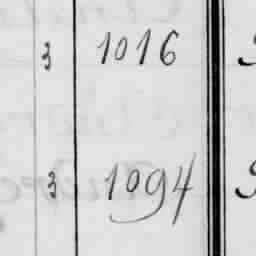 3 1016
3 1094